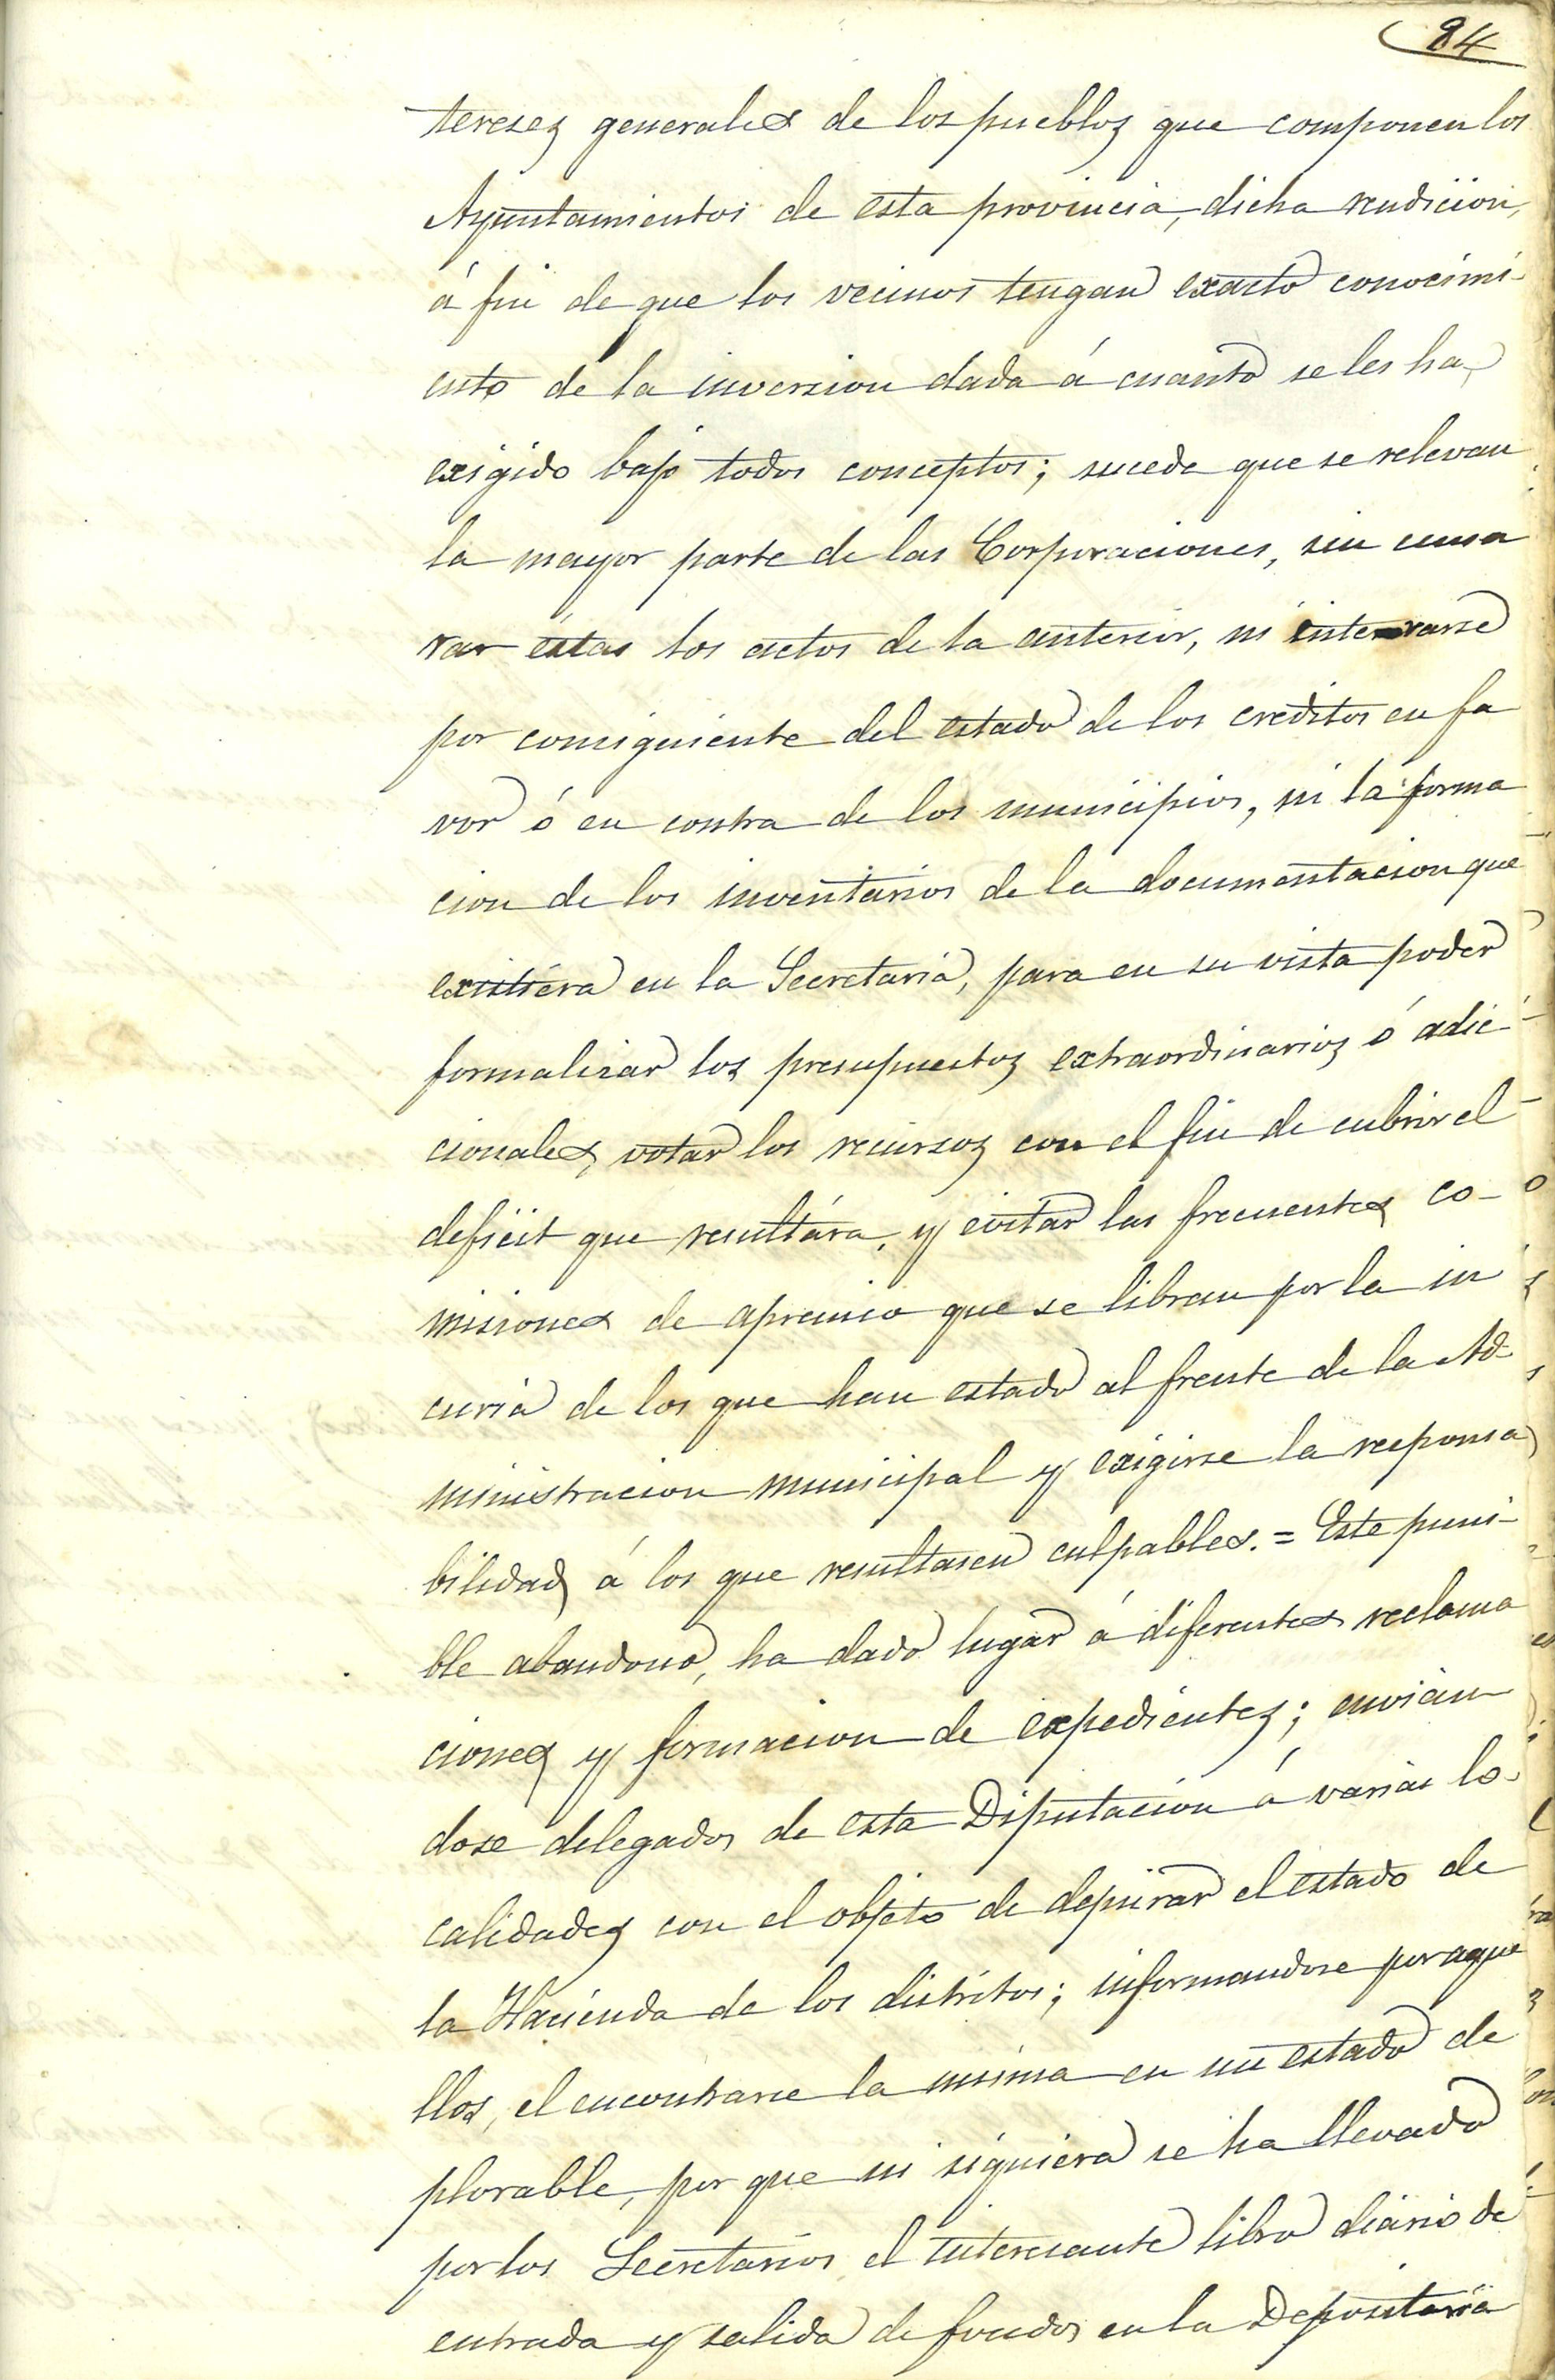 84
tereses generales de los pueblos que componen los
Ayuntamientos de esta provincia, dicha rendicion,
á fin de que los vecinos tengan exacto conocimi-
ento de la inversion dada á cuanto se les ha
exigido bajo todos conceptos; sucede que se relevan
la mayor parte de las Corporaciones, sin censu
rar éstas los actos de la anterior, ni enterarse
por consiguiente del estado de los creditos en fa
vor ó en contra de los municipios, ni la forma
cion de los inventarios de la documentacion que
existiera en la Secretaria, para en su vista poder
formalizar los presupuestos extraordinarios ó adic-
cionales, votar los recursos con el fin de cubrir el
deficit que resultára, y evitar las frecuentes co-
misiones de apremio que se libran por la in
curia de los que han estado al frente de la Ad-
ministracion municipal y exigirse la responsa
bilidad á los que resultasen culpables. = Este puni-
ble abandono, ha dado lugar á diferentes reclama
ciones y formacion de expedientes; envian
dose delegados de esta Diputación á varias lo-
calidades con el objeto de depurar el estado de
la Hacienda de los distritos; informandose por aque
llos, el encontrarse la misma en un estado de
plorable, por que ni siquiera se ha llevado
por los Secretarios el interesante libro diario de
entrada y salida de fondos en la Depositaria